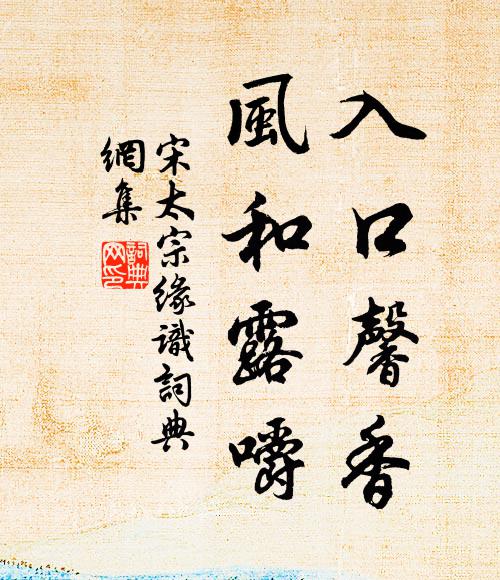 入口馨香
風和露嚼
宋太宗緣識詞典
網集
詞典
网印